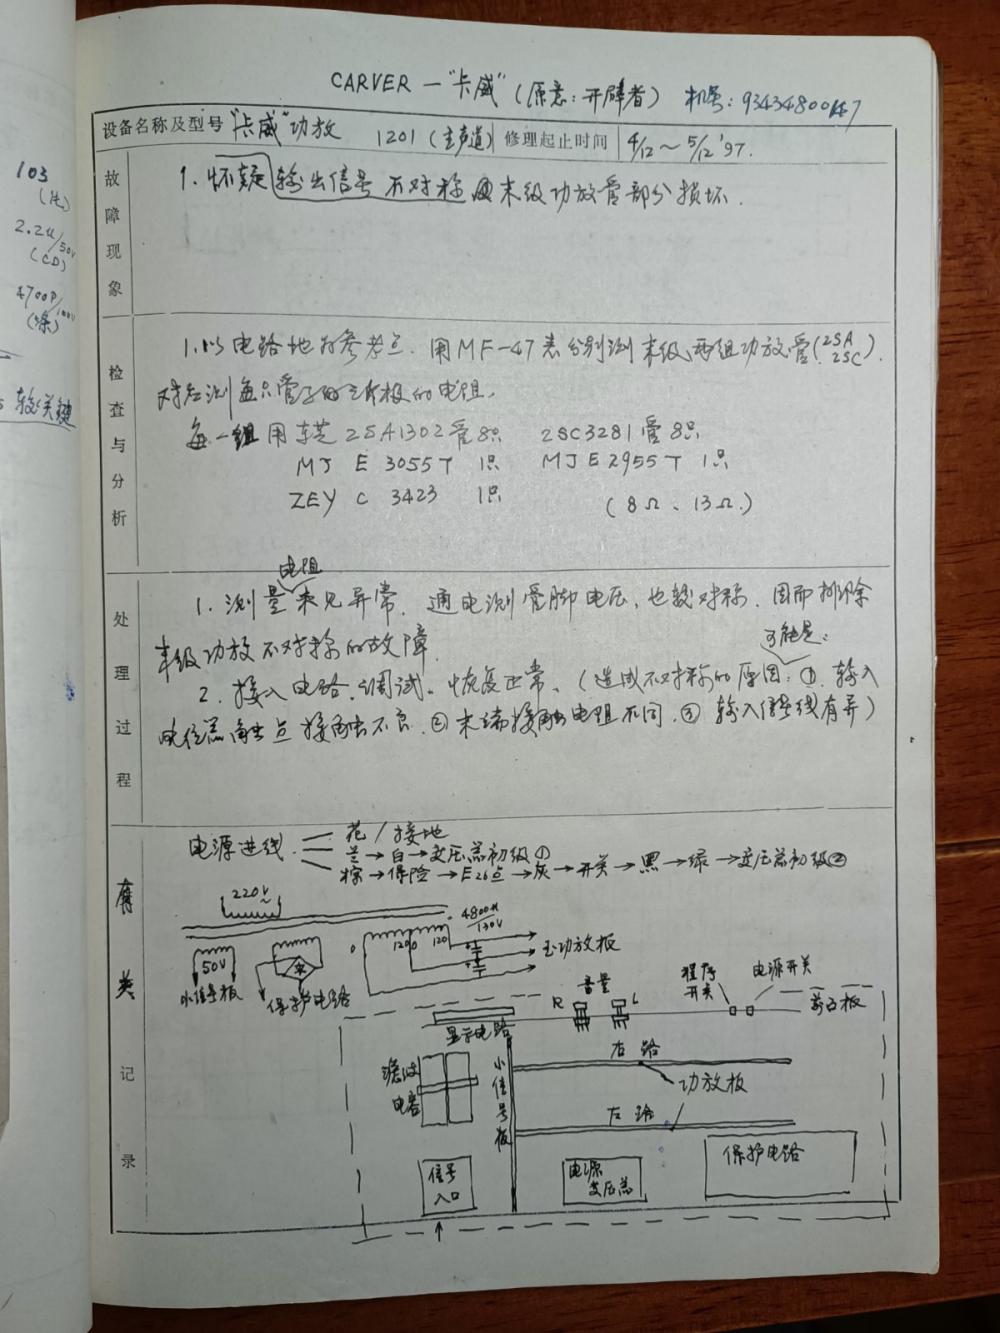 CARVER —"卡威"(原意:开辟者) 机号:93434800147
设备名称及型号 "卡威"功放 1201(主声道) 修理起止时间 4/12～5/12 '97.
103
2.2u/50V
(CD)
4700P/100V
(涤)
较关键
故障现象
1. 怀疑输出信号不对称 末级功放管部分损坏.
检查与分析
1. 以电路地为参考点. 用MF-47表分别测末级两组功放管(2SA 2SC).
对应测每只管子的三个极的电阻.
每一组用东芝2SA1302管8只 2SC3281管8只
MJE3055T 1只 MJE2955T 1只
ZEY C3423 1只 (8Ω、13Ω.)
处理过程
电阻
1. 测量未见异常. 通电测管脚电压,也较对称. 因而排除
末级功放不对称的故障.
可能是:
2. 接入电路、调试. 恢复正常. (造成不对称的原因: ①. 输入
电位器触点接触不良. ② 末端接触电阻不同. ③ 输入信号线有异)
类记录
电源进线. 花/接地
兰→白→变压器初级①
棕→保险→E26点→灰→开关→黑→绿→变压器初级②
220V～
4800μ/130V
50V
0 120 0 120
小信号板
保护电路
主功放板
程序开关
电源开关
音量
R L
前面板
显示电路
滤波电容
小信号板
右路
功放板
左路
信号入口
电源变压器
保护电路